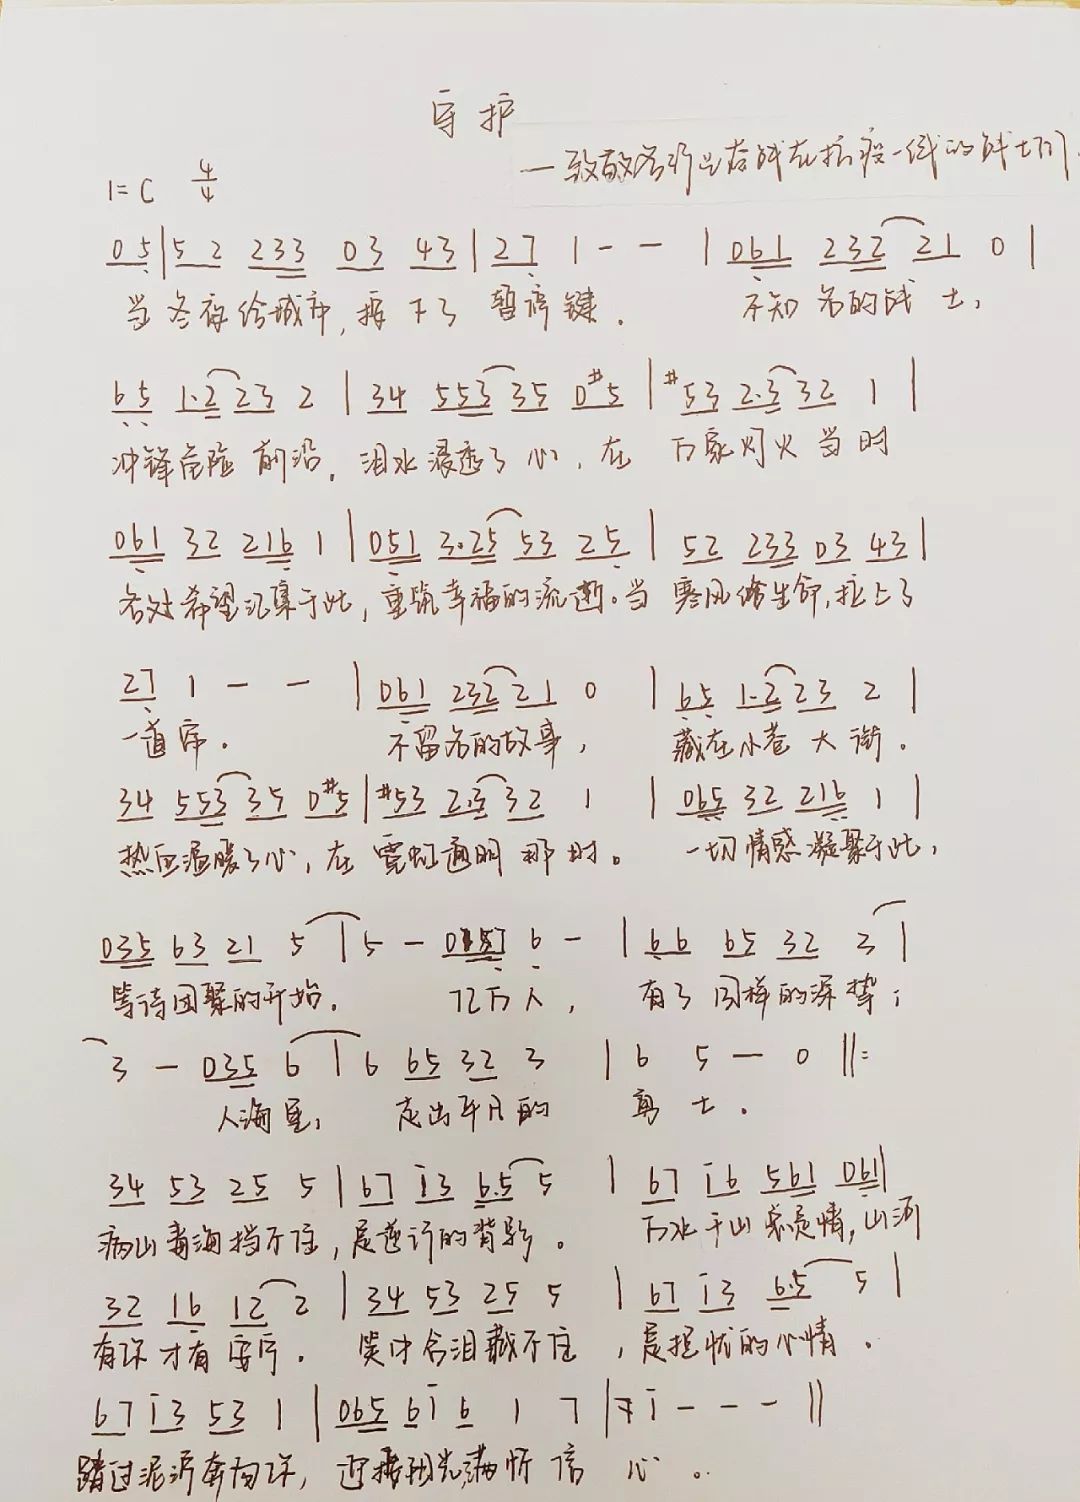 守护
—致敬各行业奋战在抗疫一线的战士们
1=C 4/4
0 5 | 5 2 2 3 3 0 3 4 3 | 2 7 1 - - | 0 6 1 2 3 2 2 1 0 |
当冬夜给城市,按下了 暂停键. 不知名的战士,
6 5 1·2 2 3 2 | 3 4 5 5 3 3 5 0 #5 | #5 3 2·3 3 2 1 |
冲锋危险前沿. 泪水浸透了心,在 万家灯火当时
0 6 1 3 2 2 1 6 1 | 0 5 1 3·2 5 5 3 2 5 | 5 2 2 3 3 0 3 4 3 |
各处希望汇集于此,重筑幸福的流逝。当 寒风给生命,拉上了
2 7 1 - - | 0 6 1 2 3 2 2 1 0 | 6 5 1·2 2 3 2 |
一道帘. 不留名的故事, 藏在小巷大街.
3 4 5 5 3 3 5 0 #5 | #5 3 2·3 3 2 1 | 0 6 5 3 2 2 1 6 1 |
热血温暖了心,在 霓虹通明那时。 一切情感凝聚于此,
0 3 5 6 3 2 1 5 | 5 - 0 5 7 6 - | 6 6 6 5 3 2 3 |
等待团聚的开始. 亿万人, 有了同样的深挚;
3 - 0 3 5 6 | 6 6 5 3 2 3 | 6 5 - 0 ||:
人海里, 走出平凡的 勇士.
3 4 5 3 2 5 5 | 6 7 i 3 6·5 5 | 6 7 i 6 5 6 1 0 6 1 |
病山毒海挡不住,是逆行的背影。 万水千山总是情,山河
3 2 1 6 1 2 2 | 3 4 5 3 2 5 5 | 6 7 i 3 6·5 5 |
有你才有安宁. 笑中含泪藏不住,是担忧的心情.
6 7 i 3 5 3 1 | 0 6 5 6 i 6 1 7 | 7 i - - - ||
踏过泥泞奔向你, 迎接阳光满怀信心。